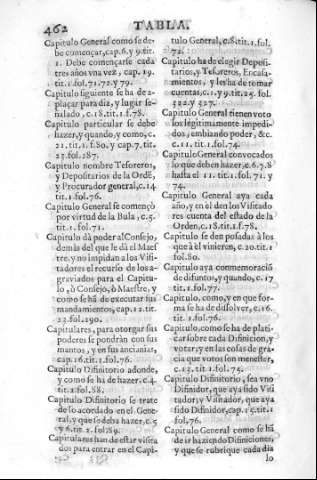 462
TABLA.
Capitulo General como se debe
començar, cap. 6. y 9. tit.
1. Debe començarse cada
tres años vna vez, cap. 19.
tit. 1. fol. 71. 72. y 79.
Capitulo siguiente se ha de aplaçar
para dia, y lugar señalado,
c. 18. tit. 1. f. 78.
Capitulo particular se debe
hazer, y quando, y como, c.
21. tit. 1. f. 80. y cap. 7. tit.
23. fol. 287.
Capitulo nombre Tesoreros,
y Depositarios de la Ordẽ,
y Procurador general, c. 14.
tit. 1. fol. 76.
Capitulo General se començò
por virtud de la Bula, c. 5.
tit. 1. fol. 71.
Capitulo dà poder al Consejo,
demàs del que le dà el Maestre.
y no impidan a los Visitadores
el recurso de los agraviados
para el Capitulo,
ò Consejo, ò Maestre, y
como se hã de executar sus
mandamientos, cap. 12. tit.
22. fol. 290.
Capitulares, para otorgar sus
poderes se pondràn con sus
mantos, y en sus ancianias,
cap. 16. tit. 1. fol. 76.
Capitulo Difinitorio adonde,
y como se ha de hazer. c. 4.
tit. 1. fol. 88.
Capitulo Difinitorio se trate
de lo acordado en el General,
y que se deba hazer, c. 5
y 6. tit. 2. fol. 89.
Capitulares han de estar visitados
para entrar en el Capitulo
General, c. 8. tit. 1. fol.
72.
Capitulo ha de elegir Depositarios,
y Tesoreros, Encasamientos,
y les ha de tomar
cuentas, c. 1. y 9. tit. 25. fol.
322. y 327.
Capitulo General tienen voto
los legitimamente impedidos,
embiando poder, &c.
c. 11. tit. 1. fol. 74.
Capitulo General convocados
lo que deben hazer, c. 6. 7. 8
hasta el 11. tit. 1. fol. 71. y
74.
Capitulo General aya cada
año, y en el den los Visitadores
cuenta del estado de la
Orden, c. 18. tit. 1. f. 78.
Capitulo se den posadas à los
que à èl vinieren, c. 20. tit. 1
fol. 80.
Capitulo aya conmemoraciõ
de difuntos, y quando, c. 17
tit. 1. fol. 77.
Capitulo, como, y en que forma
se ha de dissolver, c. 16.
tit. 1. fol. 76.
Capitulo, como se ha de platicar
sobre cada Difinicion, y
votar, y en las cosas de gracia
que votos son menester,
c. 13. tit. 1. fol. 76.
Capitulo Difinitorio, sea vno
Difinidor, que aya sido Visitador
y Visitador, que aya
sido Difinidor, cap. 15. tit. 1
fol. 76.
Capitulo General como se hã
de ir haziendo Difiniciones,
y que se rubrique cada dia
lo